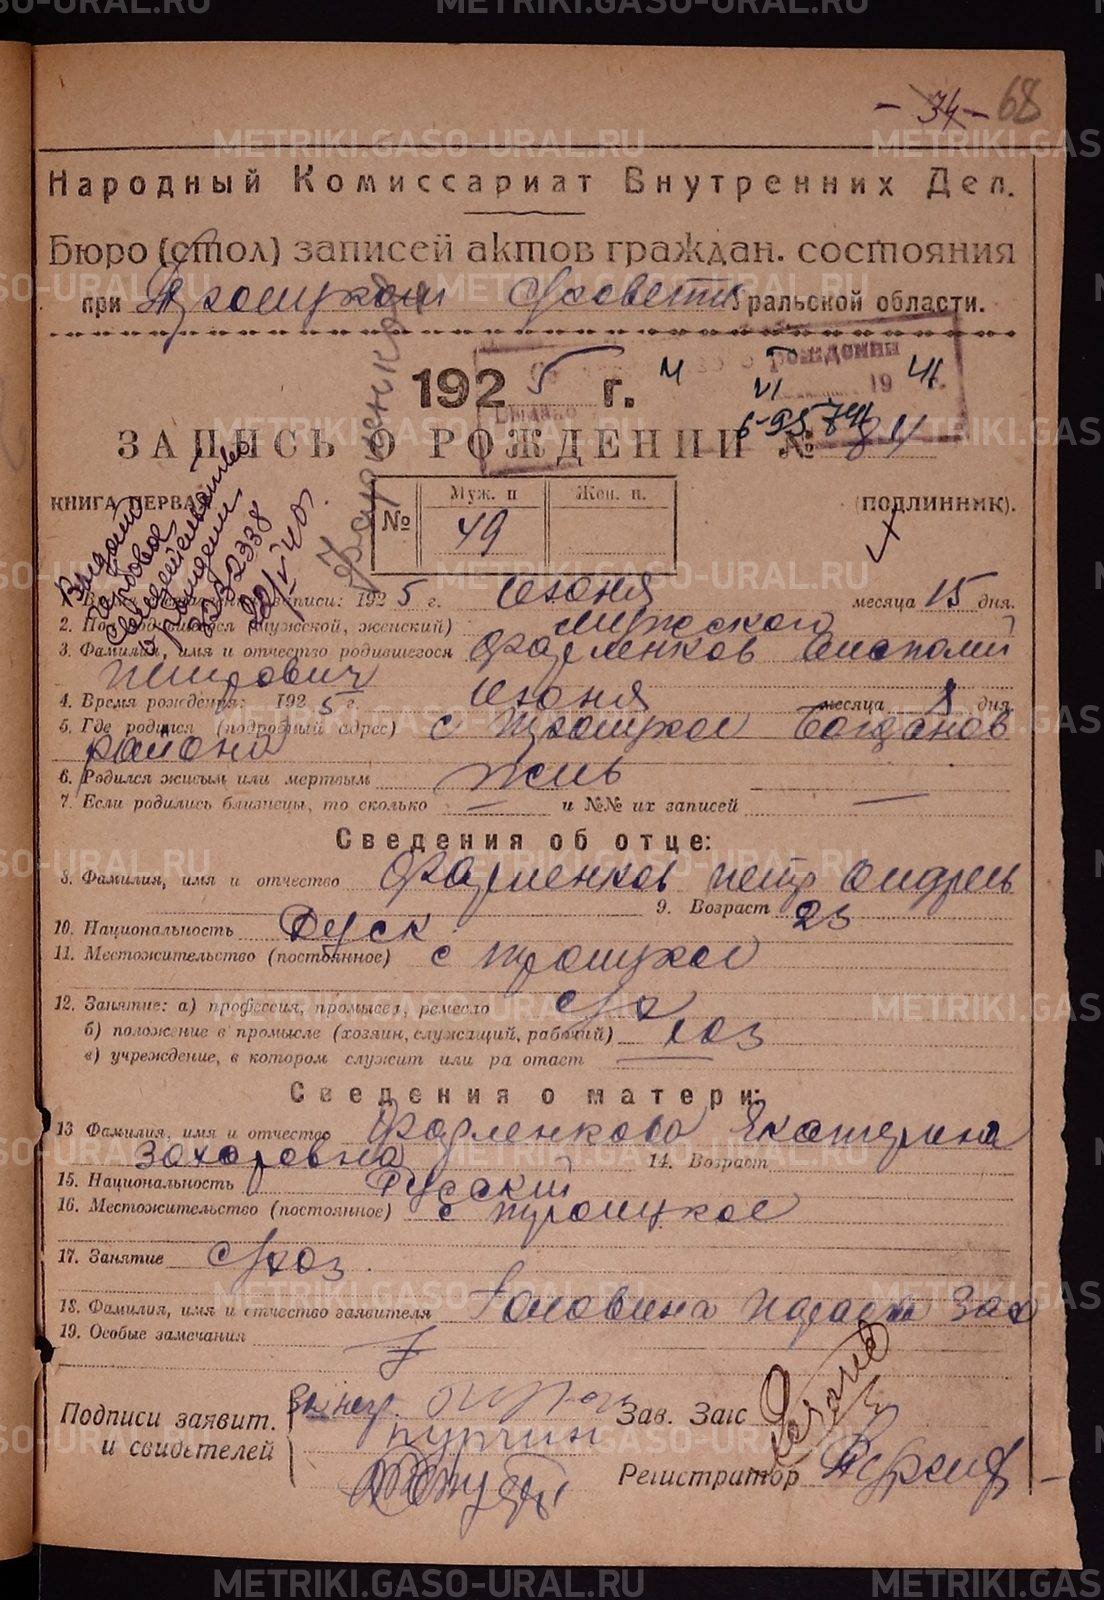 - 34 - 68
Народный Комиссариат Внутренних Дел.
Бюро (стол) записей актов граждан. состояния
при Троицком с/совете Уральской области.
о рождении
1925 г.
19 41 г.
Выдано
ЗАПИСЬ О РОЖДЕНИИ № 84
КНИГА ПЕРВАЯ (ПОДЛИННИК).
№ Муж. п Жен. п.
49
Выдано
свидетельство
о рождении
1925 г. Июня месяца 15 дня.
2. Пол родившегося (мужской, женский) мужской
3. Фамилия, имя и отчество родившегося
Петрович
4. Время рождения: 1925 г. Июня месяца 8 дня
5. Где родился (подробный адрес) с Троицкое Богданов
района
6. Родился живым или мертвым жив
7. Если родились близнецы, то сколько — и №№ их записей —
Сведения об отце:
8. Фамилия, имя и отчество Фарленков Петр Андреев
9. Возраст 25
10. Национальность Руск
11. Местожительство (постоянное) с Троицкое
12. Занятие: а) профессия, промысел, ремесло с/х
б) положение в промысле (хозяин, служащий, рабочий) хоз
в) учреждение, в котором служит или работает —
Сведения о матери:
13 Фамилия, имя и отчество Фарленкова Екатерина
Захаровна 14. Возраст
15. Национальность Русский
16. Местожительство (постоянное) с Троицкое
17. Занятие с/хоз
18. Фамилия, имя и отчество заявителя Зах
19. Особые замечания
Подписи заявит.
и свидетелей
Зав. Загс
Регистратор
METRIKI.GASO-URAL.RU